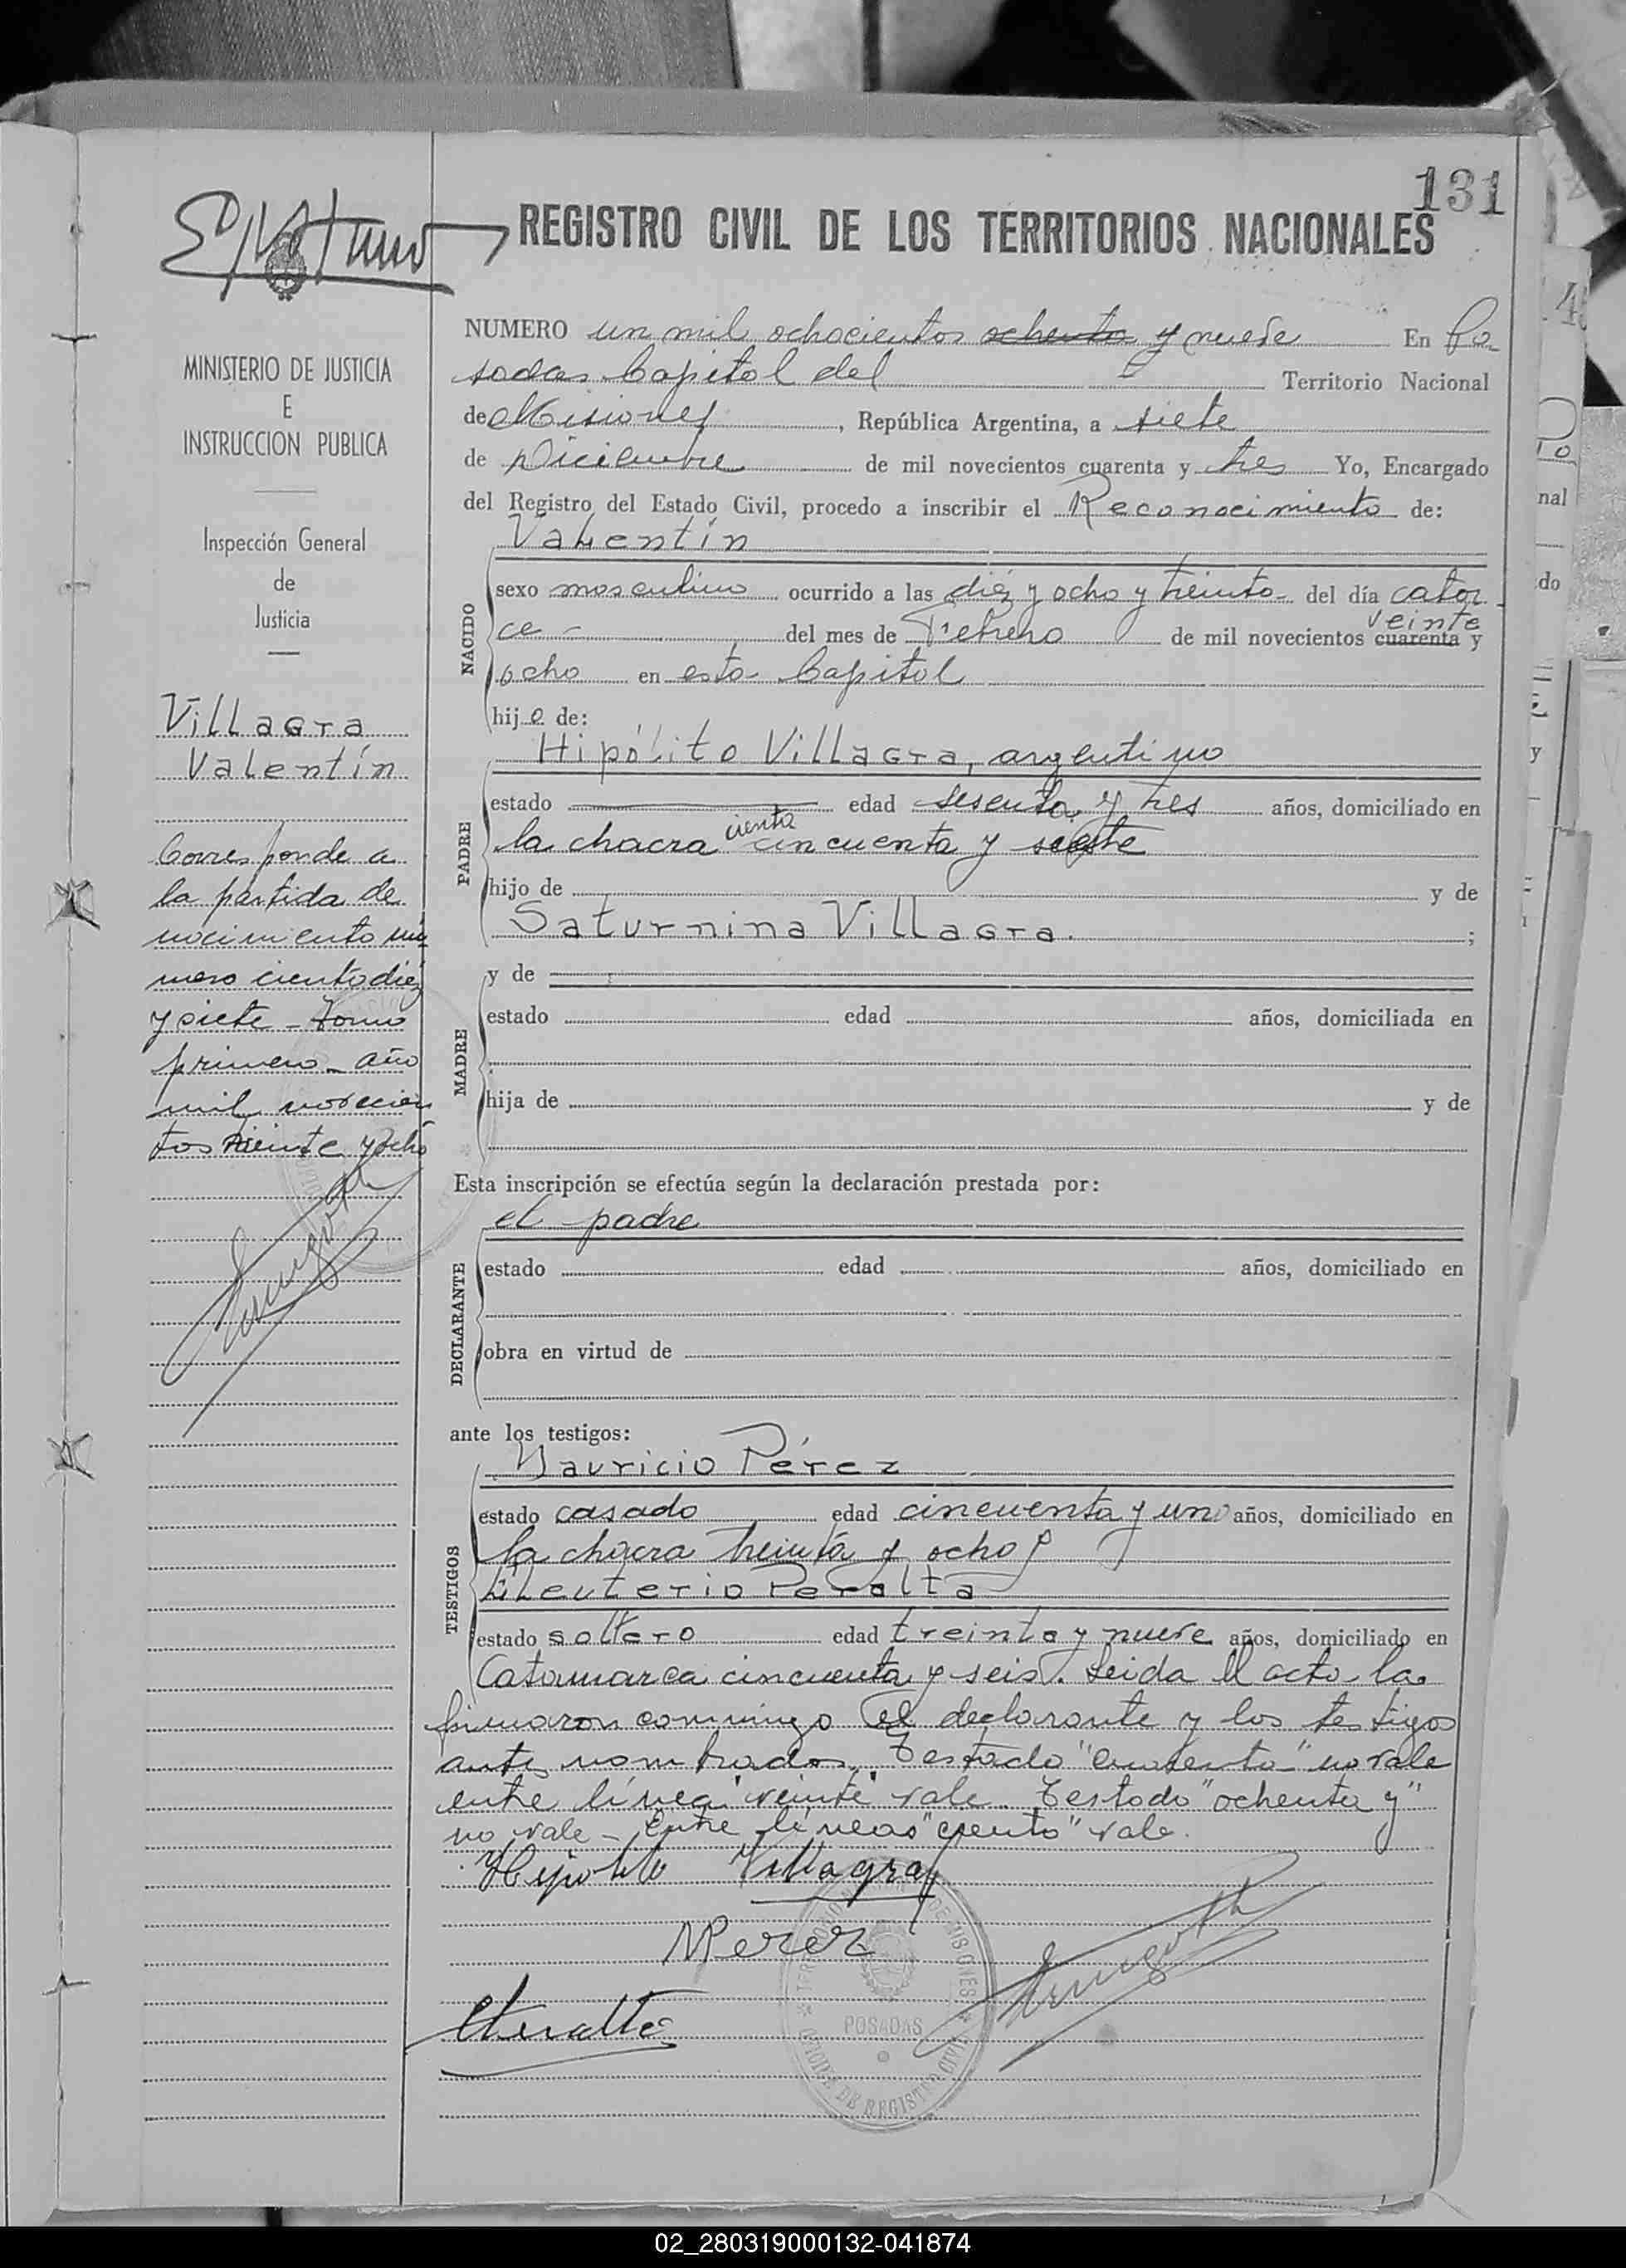 131
REGISTRO CIVIL DE LOS TERRITORIOS NACIONALES
MINISTERIO DE JUSTICIA
E
INSTRUCCION PUBLICA
Inspección General
de
Justicia
Villagra
Valentín
Corresponde a
la partida de
nacimiento nú
mero ciento diez
y siete - tomo
primero - año
mil novecien
tos y ocho
NUMERO un mil ochocientos ochenta y nueve En Po
sadas Capital del Territorio Nacional
de Misiones, República Argentina, a siete
de Diciembre de mil novecientos cuarenta y tres Yo, Encargado
del Registro del Estado Civil, procedo a inscribir el Reconocimiento de:
Valentín
NACIDO
sexo masculino ocurrido a las diez y ocho y treinta del día cator
veinte
ce - del mes de Febrero de mil novecientos cuarenta y
ocho en esta Capital
hijo de:
Hipólito Villagra, argentino
PADRE
estado edad sesenta y tres años, domiciliado en
ciento
la chacra cincuenta y
hijo de y de
Saturnina Villagra.;
y de
MADRE
estado edad años, domiciliada en
hija de y de
Esta inscripción se efectúa según la declaración prestada por:
el padre
DECLARANTE
estado edad años, domiciliado en
obra en virtud de
ante los testigos:
Mauricio Pérez
TESTIGOS
estado casado edad cincuenta y uno años, domiciliado en
la chacra treinta y ocho y
Eleuterio Peralta
estado soltero edad treinta y nueve años, domiciliado en
Catamarca cincuenta y seis. Leida el acta la
firmaron conmigo el declarante y los testigos
antes nombrados. Testado "cuarenta" no vale
entre línea "veinte" vale. Testado "ochenta y"
no vale - Entre líneas "ciento" vale.
Hipolito Villagra
MPerez
TERRITORIO DE MISIONES
POSADAS
OFICINA DE REGISTRO CIVIL
4
nal
do
y
02_280319000132-041874